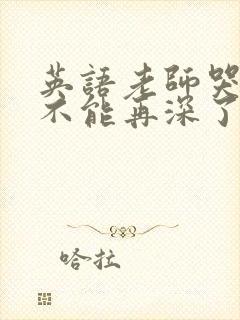 英語老師哭
不能再深了
哈拉